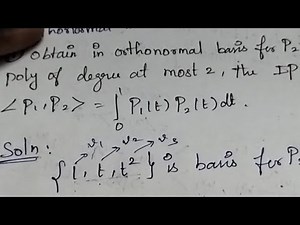 obtain in orthonormal basis for P₂
poly of degree at most 2, the IP
< P₁, P₂ > = ∫₀¹ P₁(t) P₂(t) dt.
Soln:
v₁ v₂ v₃
{ 1, t, t² } is basis for P₂